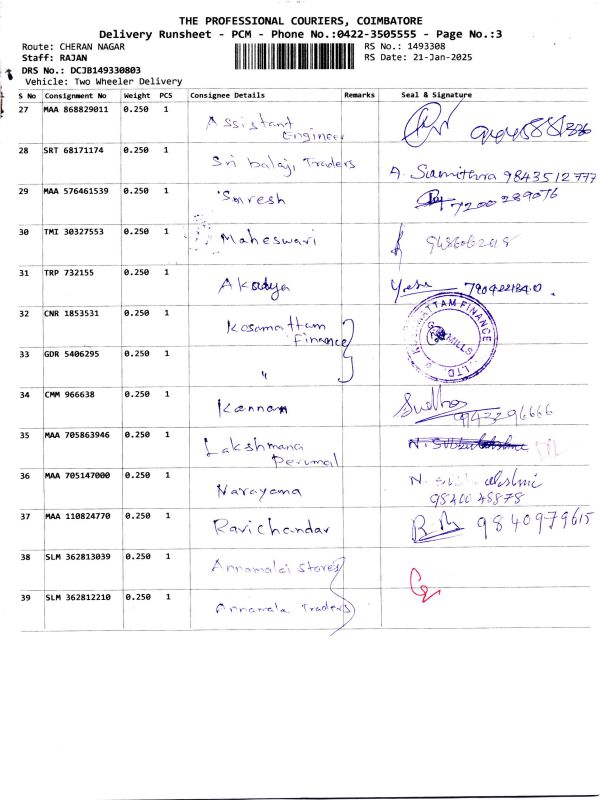 THE PROFESSIONAL COURIERS, COIMBATORE
Delivery Runsheet - PCM - Phone No.:0422-3505555 - Page No.:3
Route: CHERAN NAGAR RS No.: 1493308
Staff: RAJAN RS Date: 21-Jan-2025
DRS No.: DCJB149330803
Vehicle: Two Wheeler Delivery
S No Consignment No Weight PCS Consignee Details Remarks Seal & Signature
27 MAA 868829011 0.250 1 Assistant
Engineer
28 SRT 68171174 0.250 1 Sri balaji Traders A. Sumithra 9843512777
29 MAA 576461539 0.250 1 Smresh 7200289076
30 TMI 30327553 0.250 1 Maheswari
31 TRP 732155 0.250 1 Akadya
32 CNR 1853531 0.250 1 Kosamattam
Finance
33 GDR 5406295 0.250 1 "
34 CMM 966638 0.250 1 Kannan 9943296666
35 MAA 705863946 0.250 1 Lakshmana
Perumal
36 MAA 705147000 0.250 1 Narayama N.
37 MAA 110824770 0.250 1 Ravichandar 9840979615
38 SLM 362813039 0.250 1 Annamalai Stores
39 SLM 362812210 0.250 1 Annamala Traders